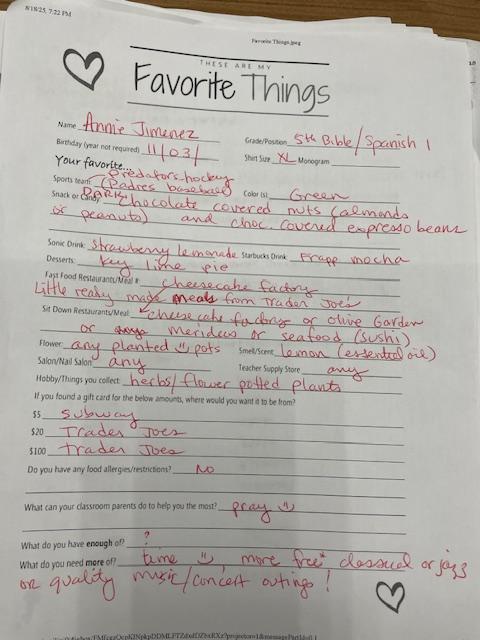 8/18/25, 7:22 PM
Favorite Things.jpeg
THESE ARE MY
Favorite Things
Name Annie Jimenez
Grade/Position 5th Bible/Spanish 1
Birthday (year not required) 11/03/
Shirt Size XL Monogram
Your favorite...
Predators-hockey
Sports team: (Padres baseball)
Color (s): Green
Snack or Candy DARK chocolate covered nuts (almonds
or peanuts) and choc. covered espresso beans
Sonic Drink: Strawberry lemonade Starbucks Drink: Frapp mocha
Desserts: Key lime pie
Fast Food Restaurants/Meal #: cheesecake factory
Little ready made meals from Trader Joe's
Sit Down Restaurants/Meal: cheesecake factory or olive Garden
or merideos or seafood (sushi)
Flower: any planted pots
Smell/Scent lemon (essential oil)
Salon/Nail Salon any
Teacher Supply Store any
Hobby/Things you collect: herbs/flower potted plants
If you found a gift card for the below amounts, where would you want it to be from?
$5 subway
$20 Trader Joes
$100 Trader Joes
Do you have any food allergies/restrictions? No
What can your classroom parents do to help you the most? pray
What do you have enough of? ?
What do you need more of? time, more free classical or jazz
or quality music/concert outings!